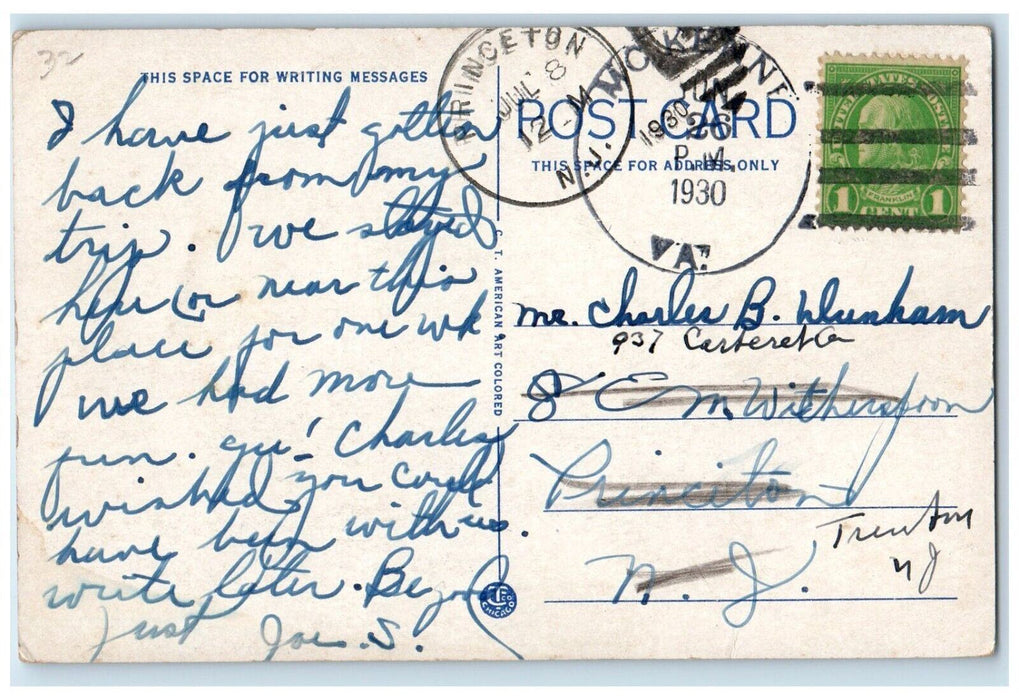 32
THIS SPACE FOR WRITING MESSAGES
I have just gotten
back from my
trip. We stayed
here or near this
place for one wk
we had more
fun. gee! Charles
wished you could
have been with us.
write later. Be good
Just Joe. S.
C. T. AMERICAN ART COLORED
CHICAGO
PRINCETON
JUL 8
12 M
N.J.
POST CARD
THIS SPACE FOR ADDRESS ONLY
1930
26
P.M.
1930
VA.
UNITED STATES POSTAGE
FRANKLIN
1 CENT 1
Mr. Charles B. Dunham
937 Carteret
8 E M Witherspoon
Princeton
Trenton
NJ
N. J.